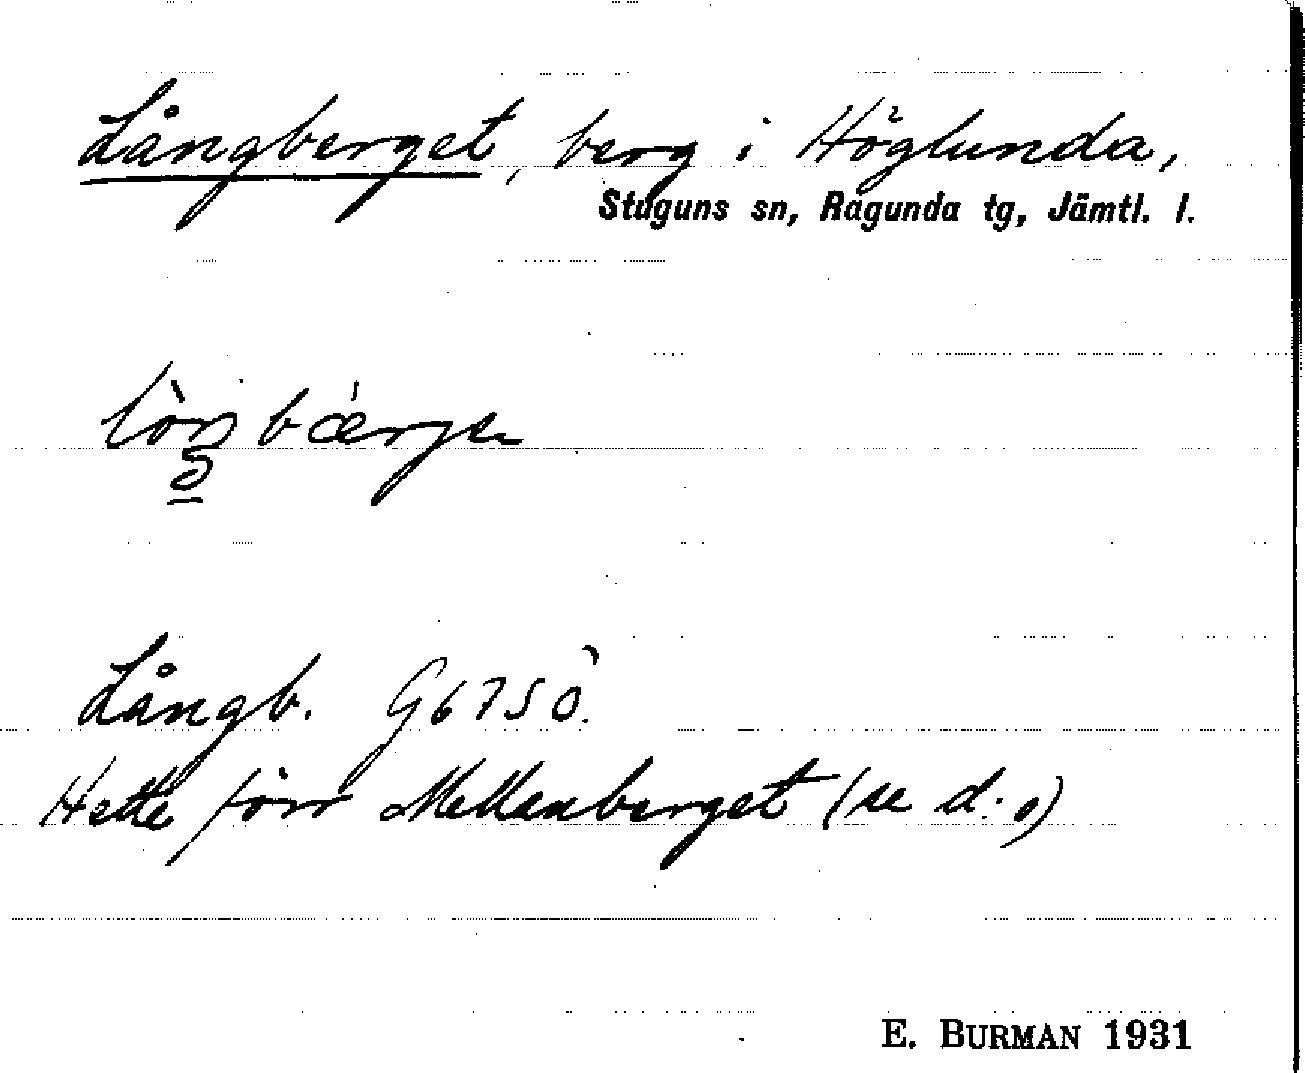 Långberget, berg i Höglunda,
Stuguns sn, Ragunda tg, Jämtl. l.
Långb. G6750.
Hette förr Mellanberget (se d. o)
E. BURMAN 1931